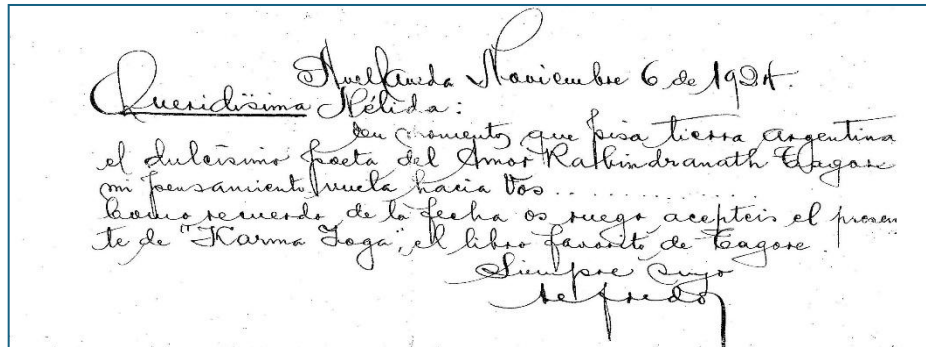 Avellaneda Noviembre 6 de 1924.
Queridísima Nélida:
En momentos que pisa tierra argentina
el dulcísimo poeta del Amor Rabindranath Tagore
mi pensamiento vuela hacia Vos..............
Como recuerdo de la fecha os ruego acepteis el presen
te de "Karma Yoga", el libro favorito de Tagore.
Siempre suyo
Alfredo